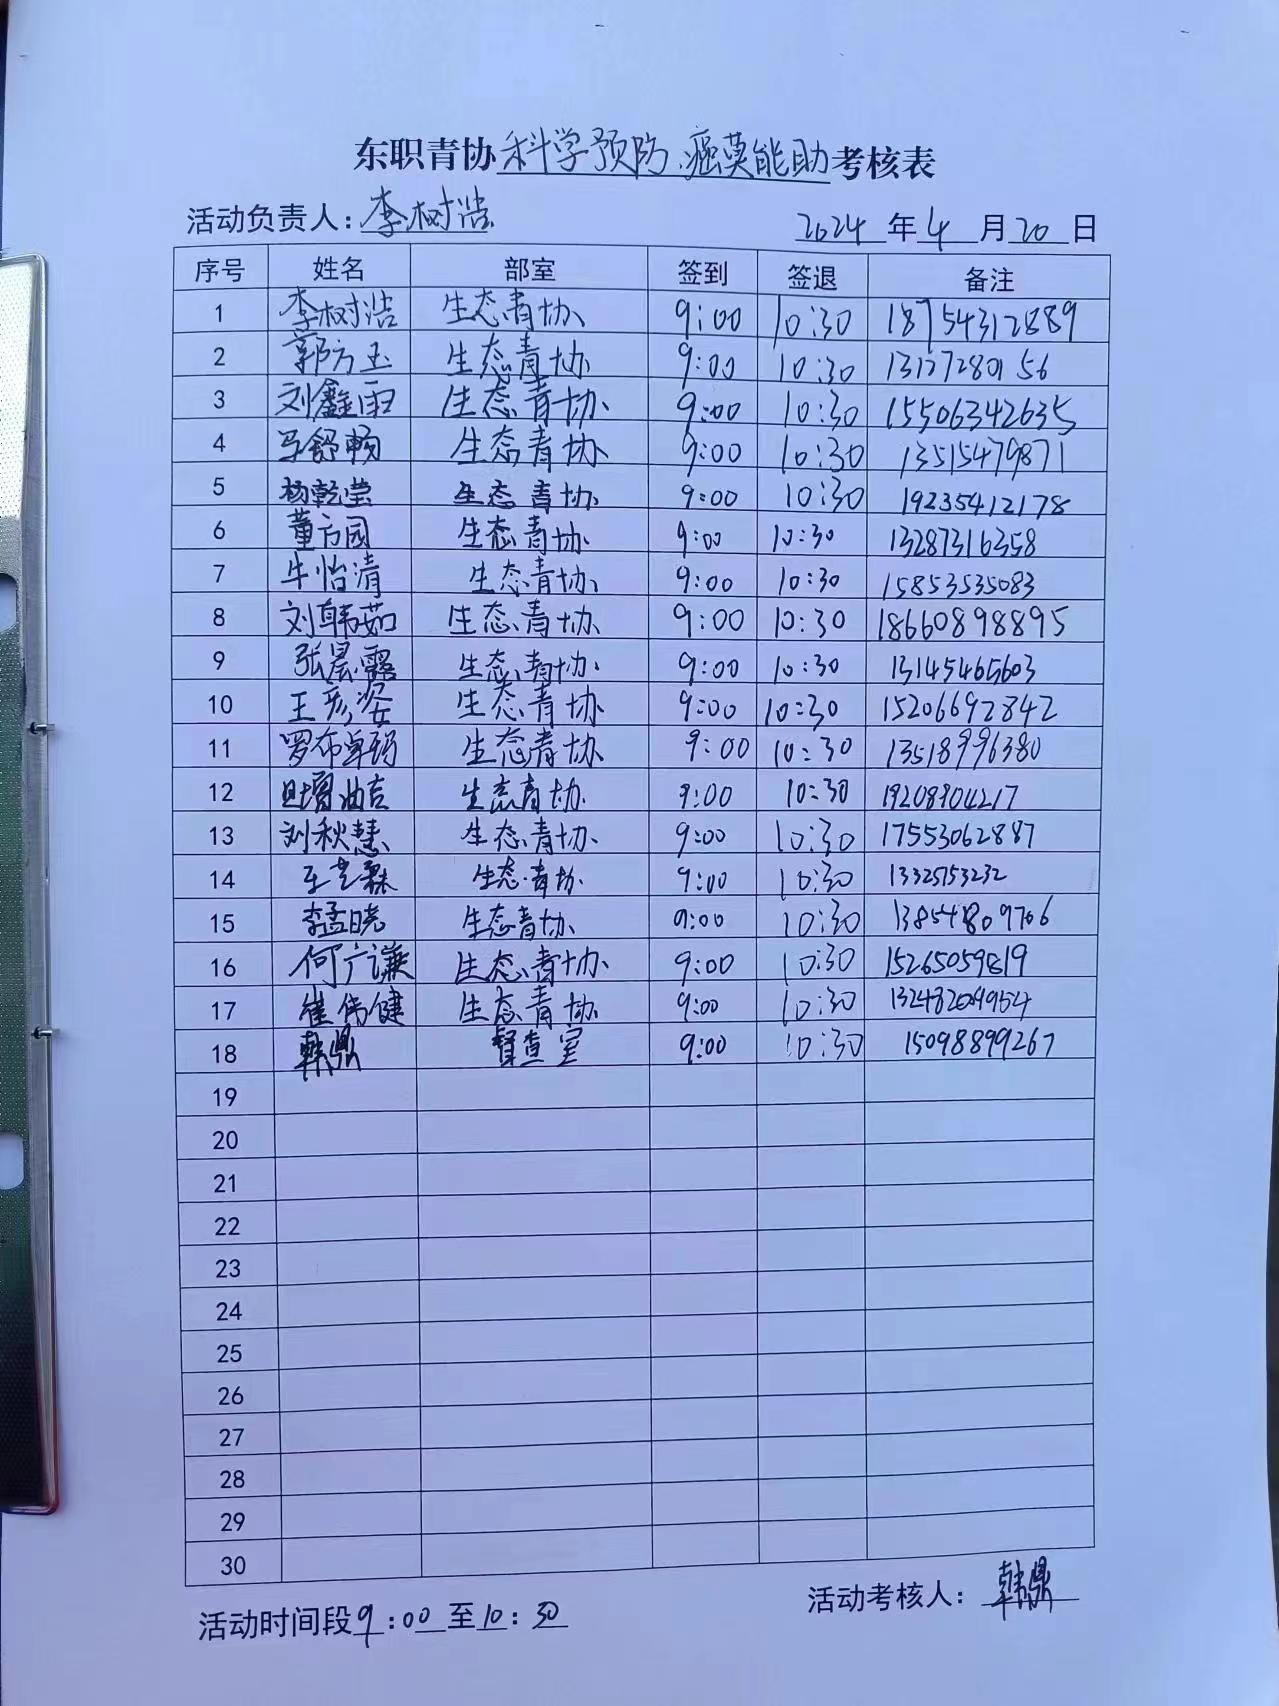 东职青协科学预防.癌莫能助考核表
活动负责人:李树浩 2024年4月20日
序号 姓名 部室 签到 签退 备注
1 李树浩 生态青协 9:00 10:30 18754312889
2 郭方玉 生态青协 9:00 10:30
3 刘鑫雨 生态青协 9:00 10:30 15506342635
4 马舒畅 生态青协 9:00 10:30 13515479871
5 杨乾莹 生态青协 9:00 10:30 19235412178
6 董方园 生态青协 9:00 10:30 13287316358
7 牛怡清 生态青协 9:00 10:30 15853535083
8 刘韩茹 生态青协 9:00 10:30 18660898895
9 张晨露 生态青协 9:00 10:30 13145465603
10 王彦姿 生态青协 9:00 10:30 15206692842
11 罗布卓玛 生态青协 9:00 10:30 13518996380
12 旦增曲吉 生态青协 9:00 10:30 19208904217
13 刘秋慧 生态青协 9:00 10:30 17553062887
14 王艺霖 生态青协 9:00 10:30 13325153232
15 李孟晓 生态青协 9:00 10:30
16 何广谦 生态青协 9:00 10:30 15265059819
17 崔伟健 生态青协 9:00 10:30
18 韩鼎 督查室 9:00 10:30 15098899267
19
20
21
22
23
24
25
26
27
28
29
30
活动时间段9:00至10:30 活动考核人:韩鼎